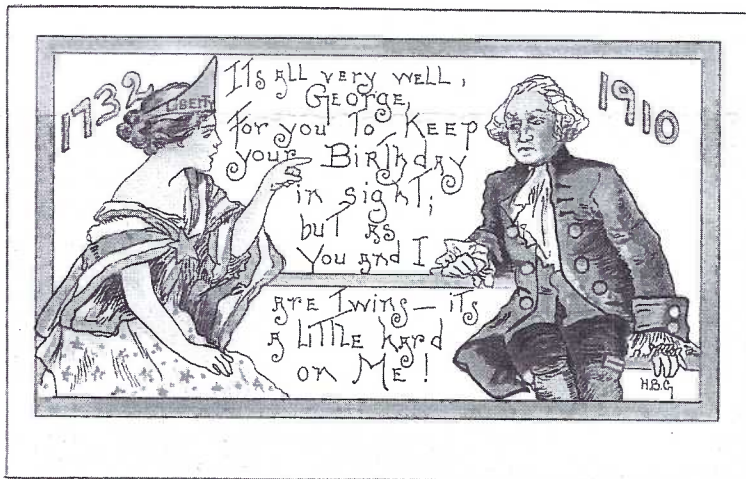 1732
LIBERTY
1910
ITs all very well,
George,
For you To Keep
your Birthday
in sight;
but as
You and I
are Twins—its
a Little hard
on Me!
H.B.G